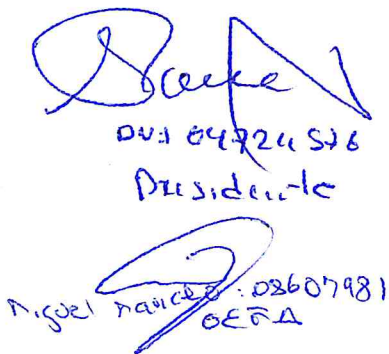 DNI 04724576
Presidente
Miguel Marcelo : 08607981
OEFA